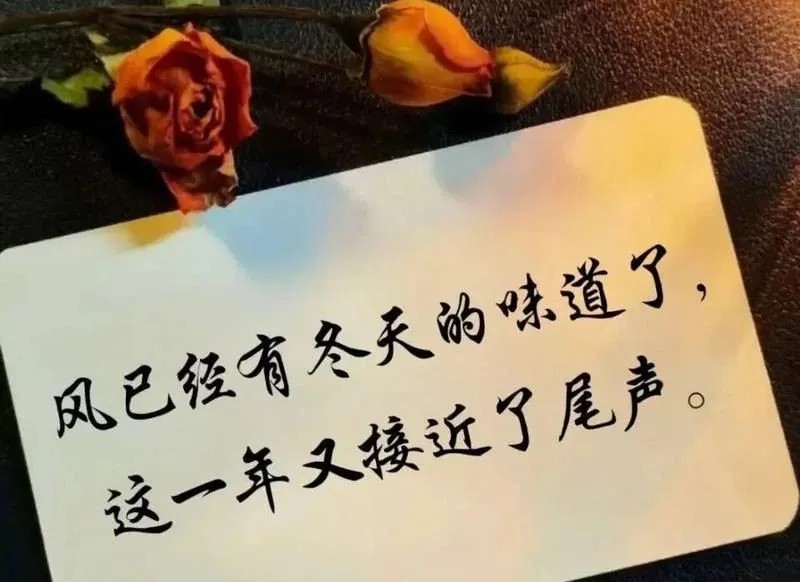 风已经有冬天的味道了，
这一年又接近了尾声。